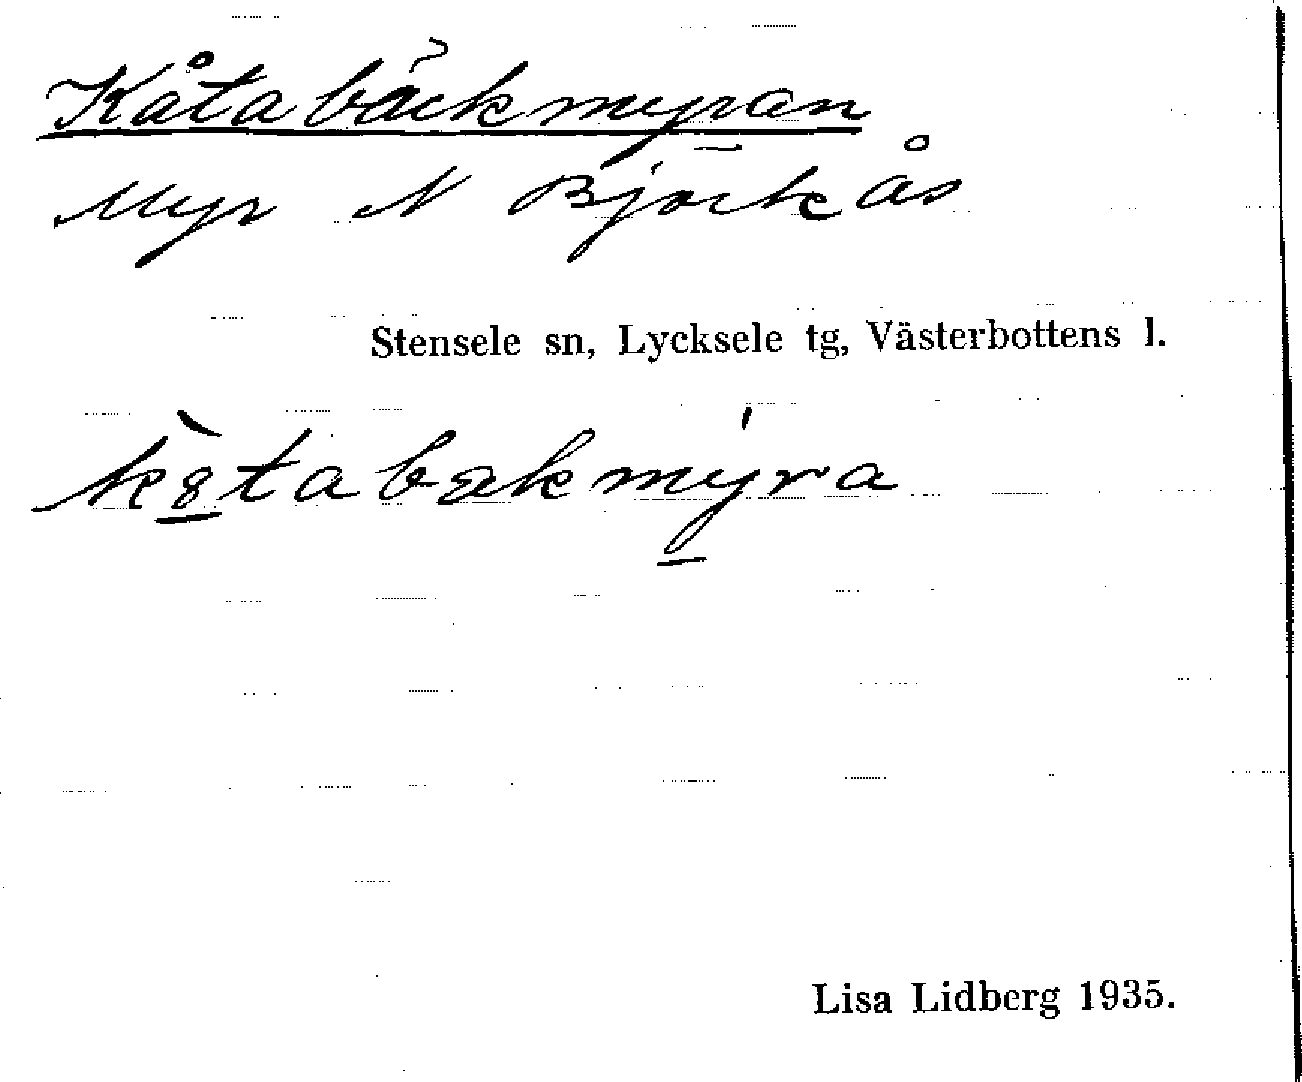 Kåtabäckmyran
Myr N Björkås
Stensele sn, Lycksele tg, Västerbottens l.
k8̲̀tabakmý̲ra
Lisa Lidberg 1935.